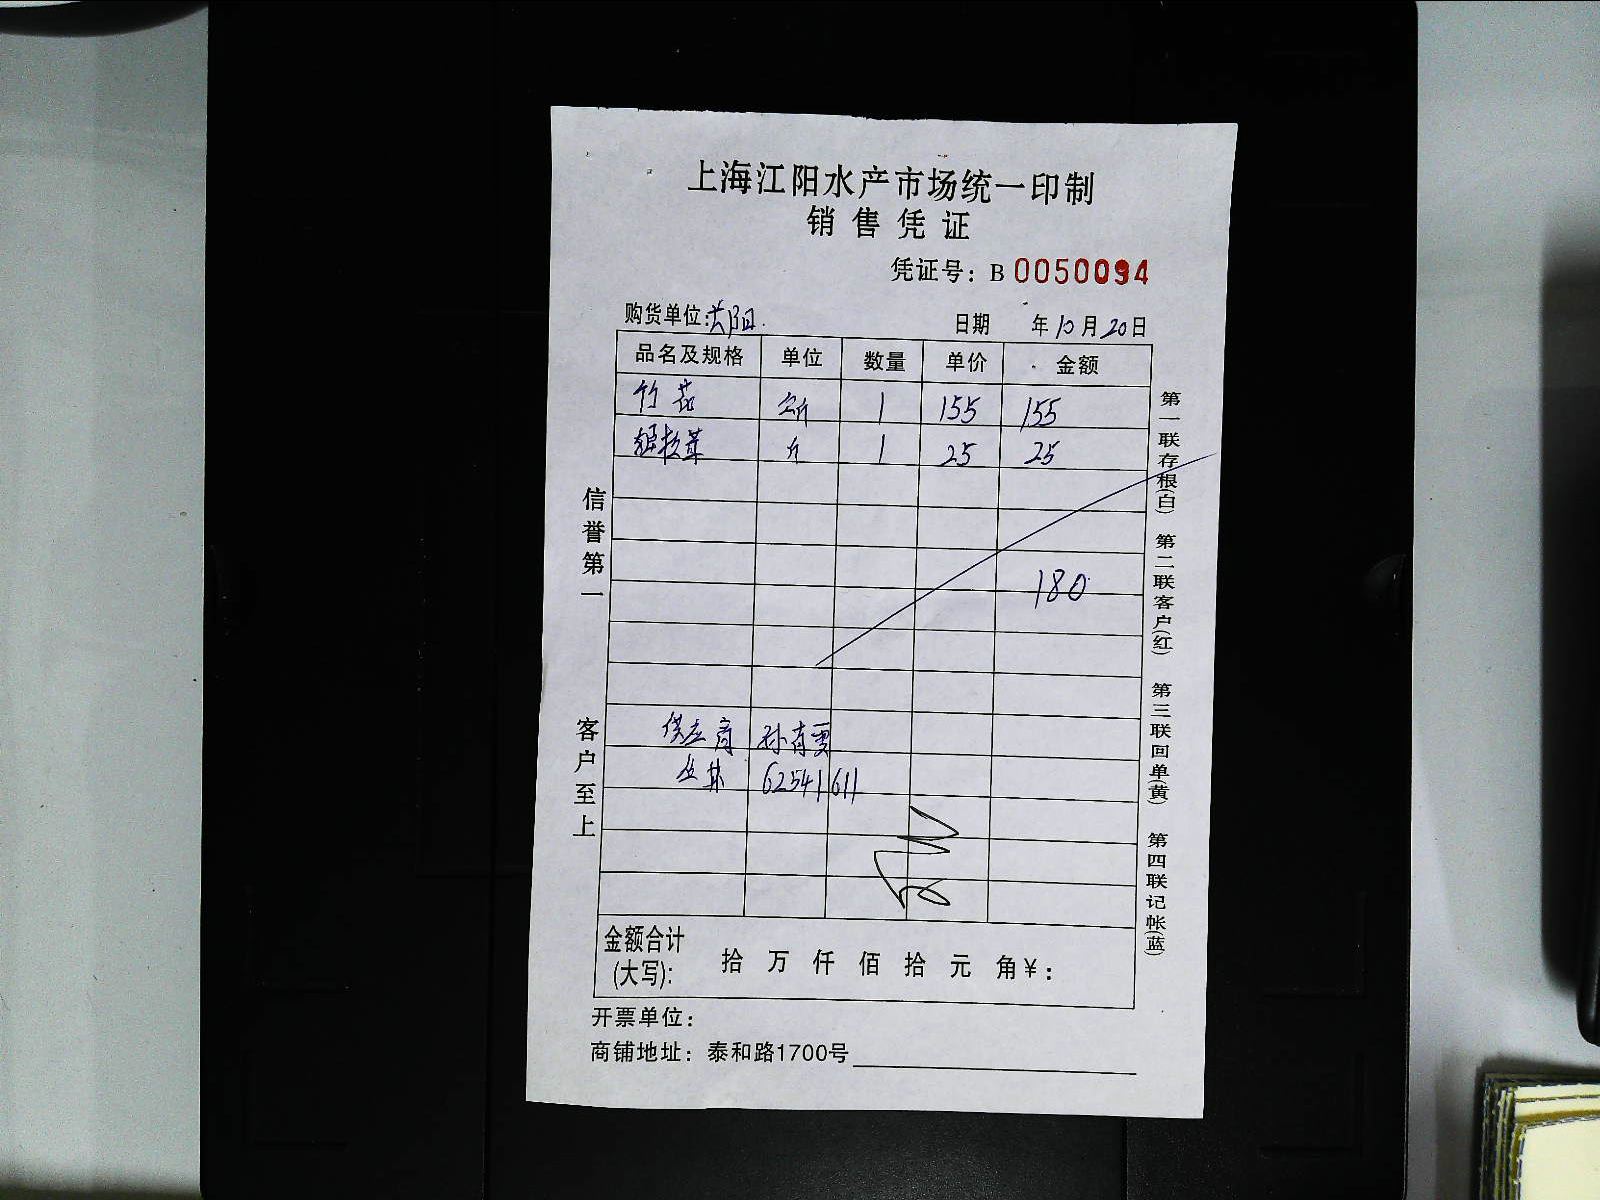 上海江阳水产市场统一印制
销售凭证
凭证号：B 0050094
购货单位: 日期 年10月20日
品名及规格 单位 数量 单价 金额
竹 1 155 155
斤 1 25 25
180
供应商 孙
62541611
金额合计(大写): 拾 万 仟 佰 拾 元 角 ¥：
开票单位：
商铺地址：泰和路1700号
信誉第一
客户至上
第一联存根(白) 第二联客户(红) 第三联回单(黄) 第四联记帐(蓝)